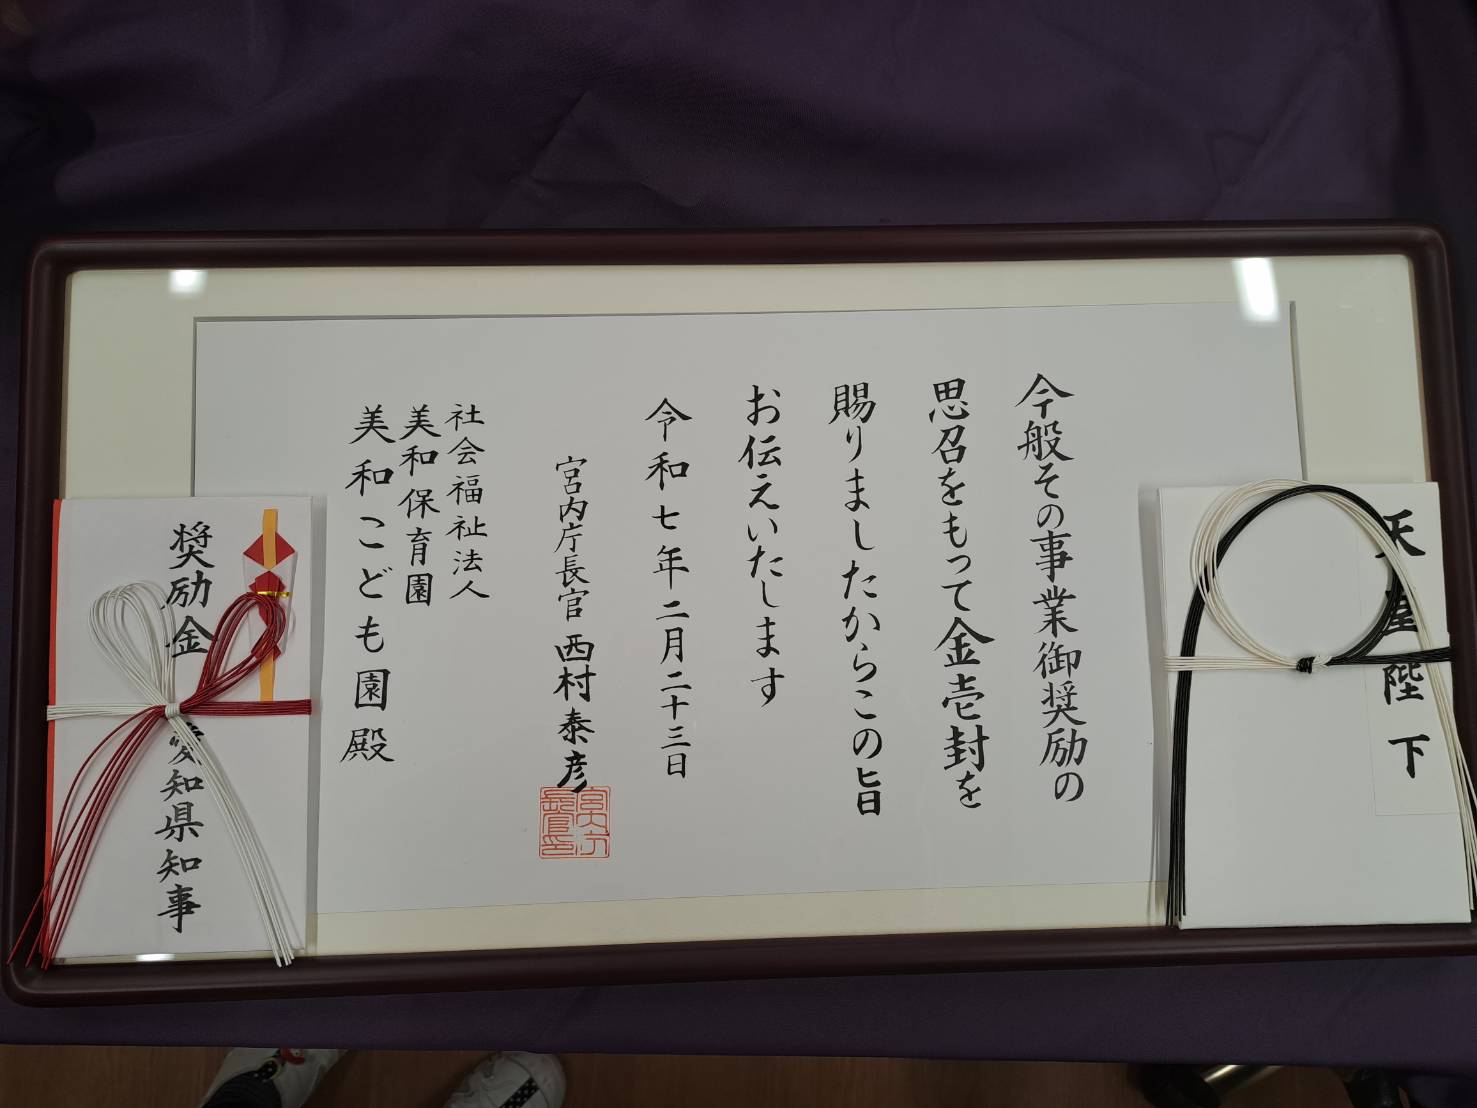 天皇陛下
今般その事業御奨励の
思召をもって金壱封を
賜りましたからこの旨
お伝えいたします
令和七年二月二十三日
宮内庁長官 西村泰彦
宮内庁長官印
社会福祉法人
美和保育園
美和こども園殿
奨励金
愛知県知事